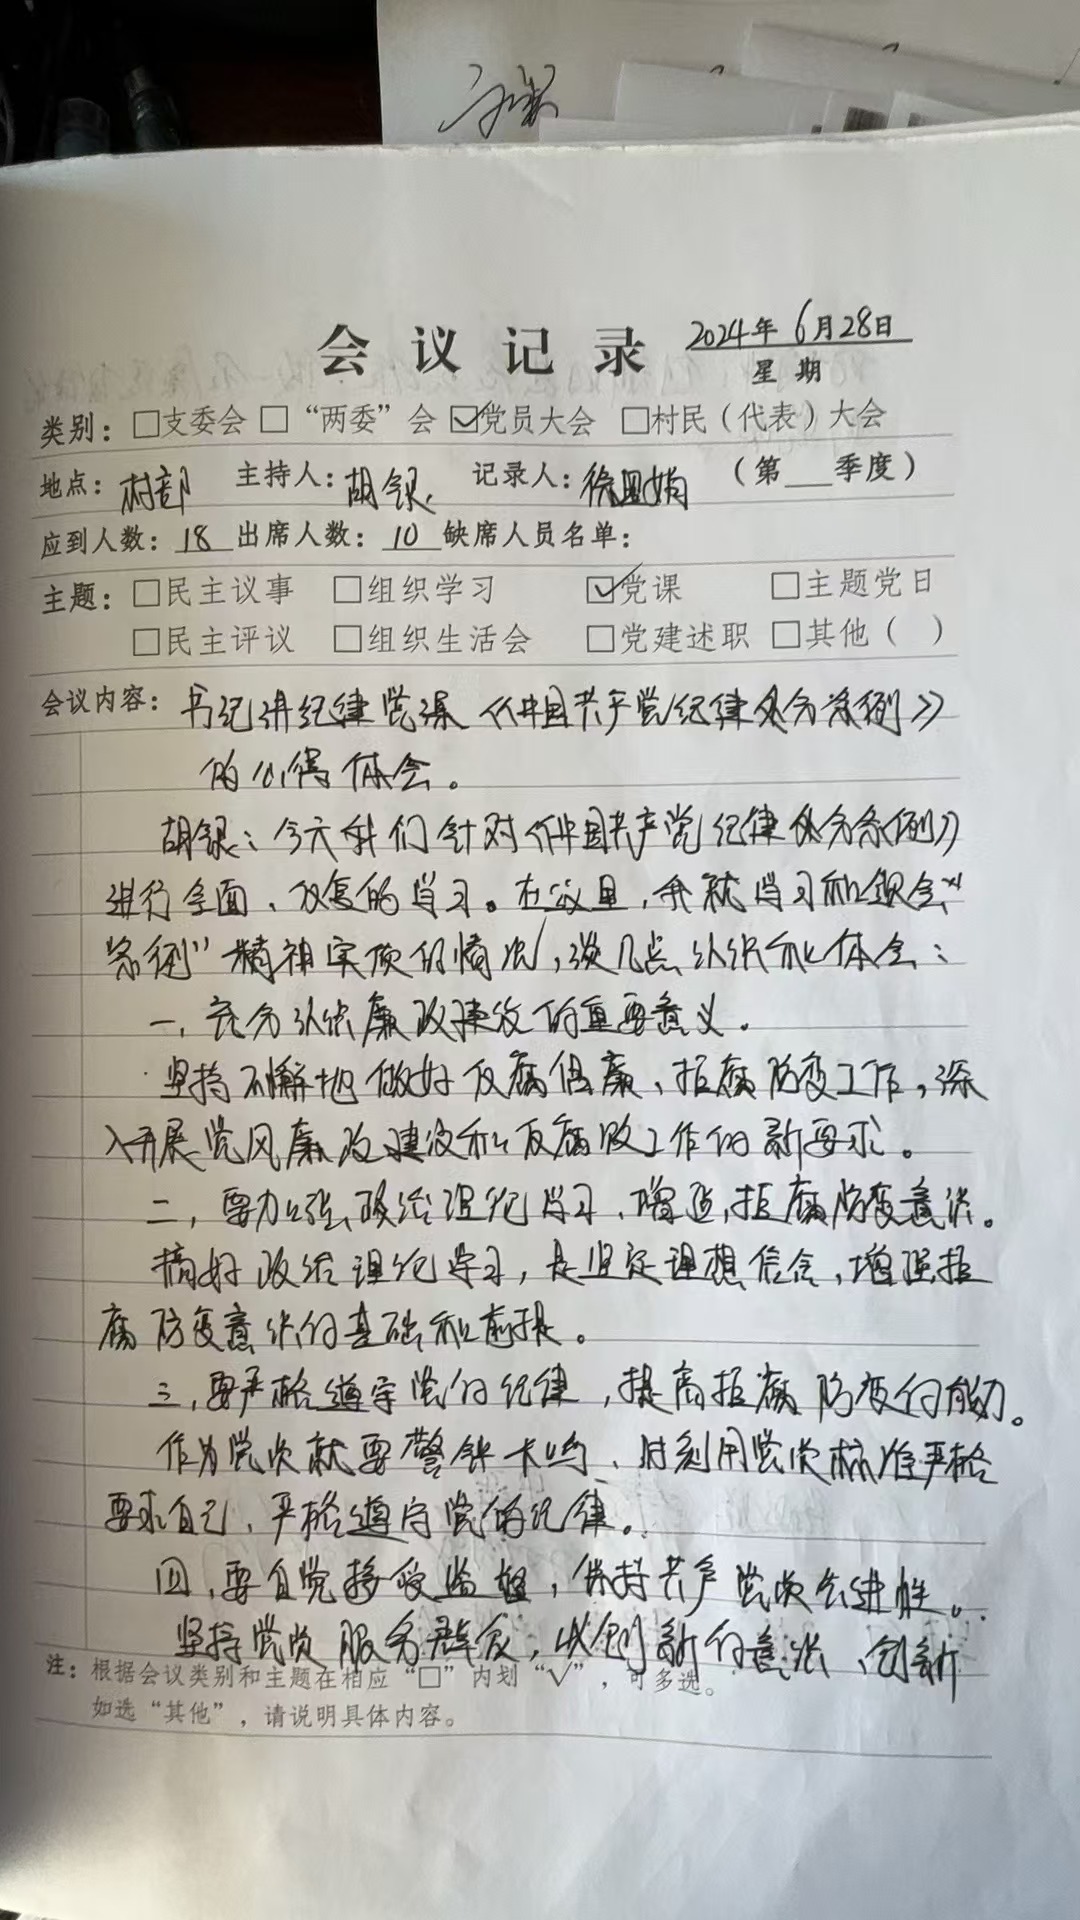 会议记录 2024年6月28日
星期
类别：□支委会 □“两委”会 ☑党员大会 □村民（代表）大会
地点：村部 主持人：胡银 记录人：徐娟 （第__季度）
应到人数：18 出席人数：10 缺席人员名单：
主题：□民主议事 □组织学习 ☑党课 □主题党日
□民主评议 □组织生活会 □党建述职 □其他（ ）
会议内容：书记讲纪律党课《中国共产党纪律处分条例》
的心得体会。
胡银：今天我们针对《中国共产党纪律处分条例》
进行全面、反复的学习。在这里，我就学习和领会
“条例”精神实质的情况，谈几点认识和体会：
一，充分认识廉政建设的重要意义。
坚持不懈地做好反腐倡廉、拒腐防变工作，深
入开展党风廉政建设和反腐败工作的新要求。
二，要加强政治理论学习，增强拒腐防变意识。
搞好政治理论学习，是坚定理想信念，增强拒
腐防变意识的基础和前提。
三，要严格遵守党的纪律，提高拒腐防变的能力。
作为党员就要警钟长鸣，时刻用党员标准严格
要求自己，严格遵守党的纪律。
四，要自觉接受监督，保持共产党员先进性。
坚持党员服务群众，以创新的意识、创新
注：根据会议类别和主题在相应“□”内划“√”，可多选。
如选“其他”，请说明具体内容。